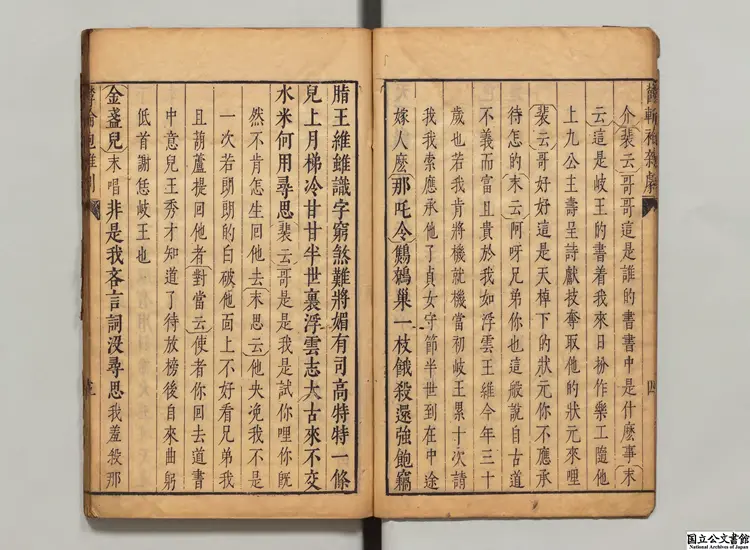 介裴云哥哥這是誰的書書中是什麽事末
云這是岐王的書着我來日扮作樂工隨他
上九公主壽呈詩獻技奪取他的狀元來哩
裴云哥好好這是天掉下的狀元你不應承
待怎的末云阿呀兄弟你也這般說自古道
不義而富且貴於我如浮雲王維今年三十
歲也若我肯將機就機當初岐王累十次請
我我索應承他了貞女守節半世到在中途
嫁人麽那吒令鷦鷯巢一枝餓殺還強飽竊
脂王維雖識字窮煞難將媚有司高特特一條
兒上月梯冷甘甘半世裏浮雲志大古來不交
水米何用尋思裴云哥是是我是試你哩你旣
然不肯怎生回他去末思云他央浼我不是
一次若朗朗的白破他面上不好看兄弟我
且葫蘆提回他者對當云使者你回去道書
中意兒王秀才知道了待放榜後自來曲躬
低首謝恁岐王也
金盞兒末唱非是我吝言詞没尋思我羞殺那
国立公文書館
National Archives of Japan